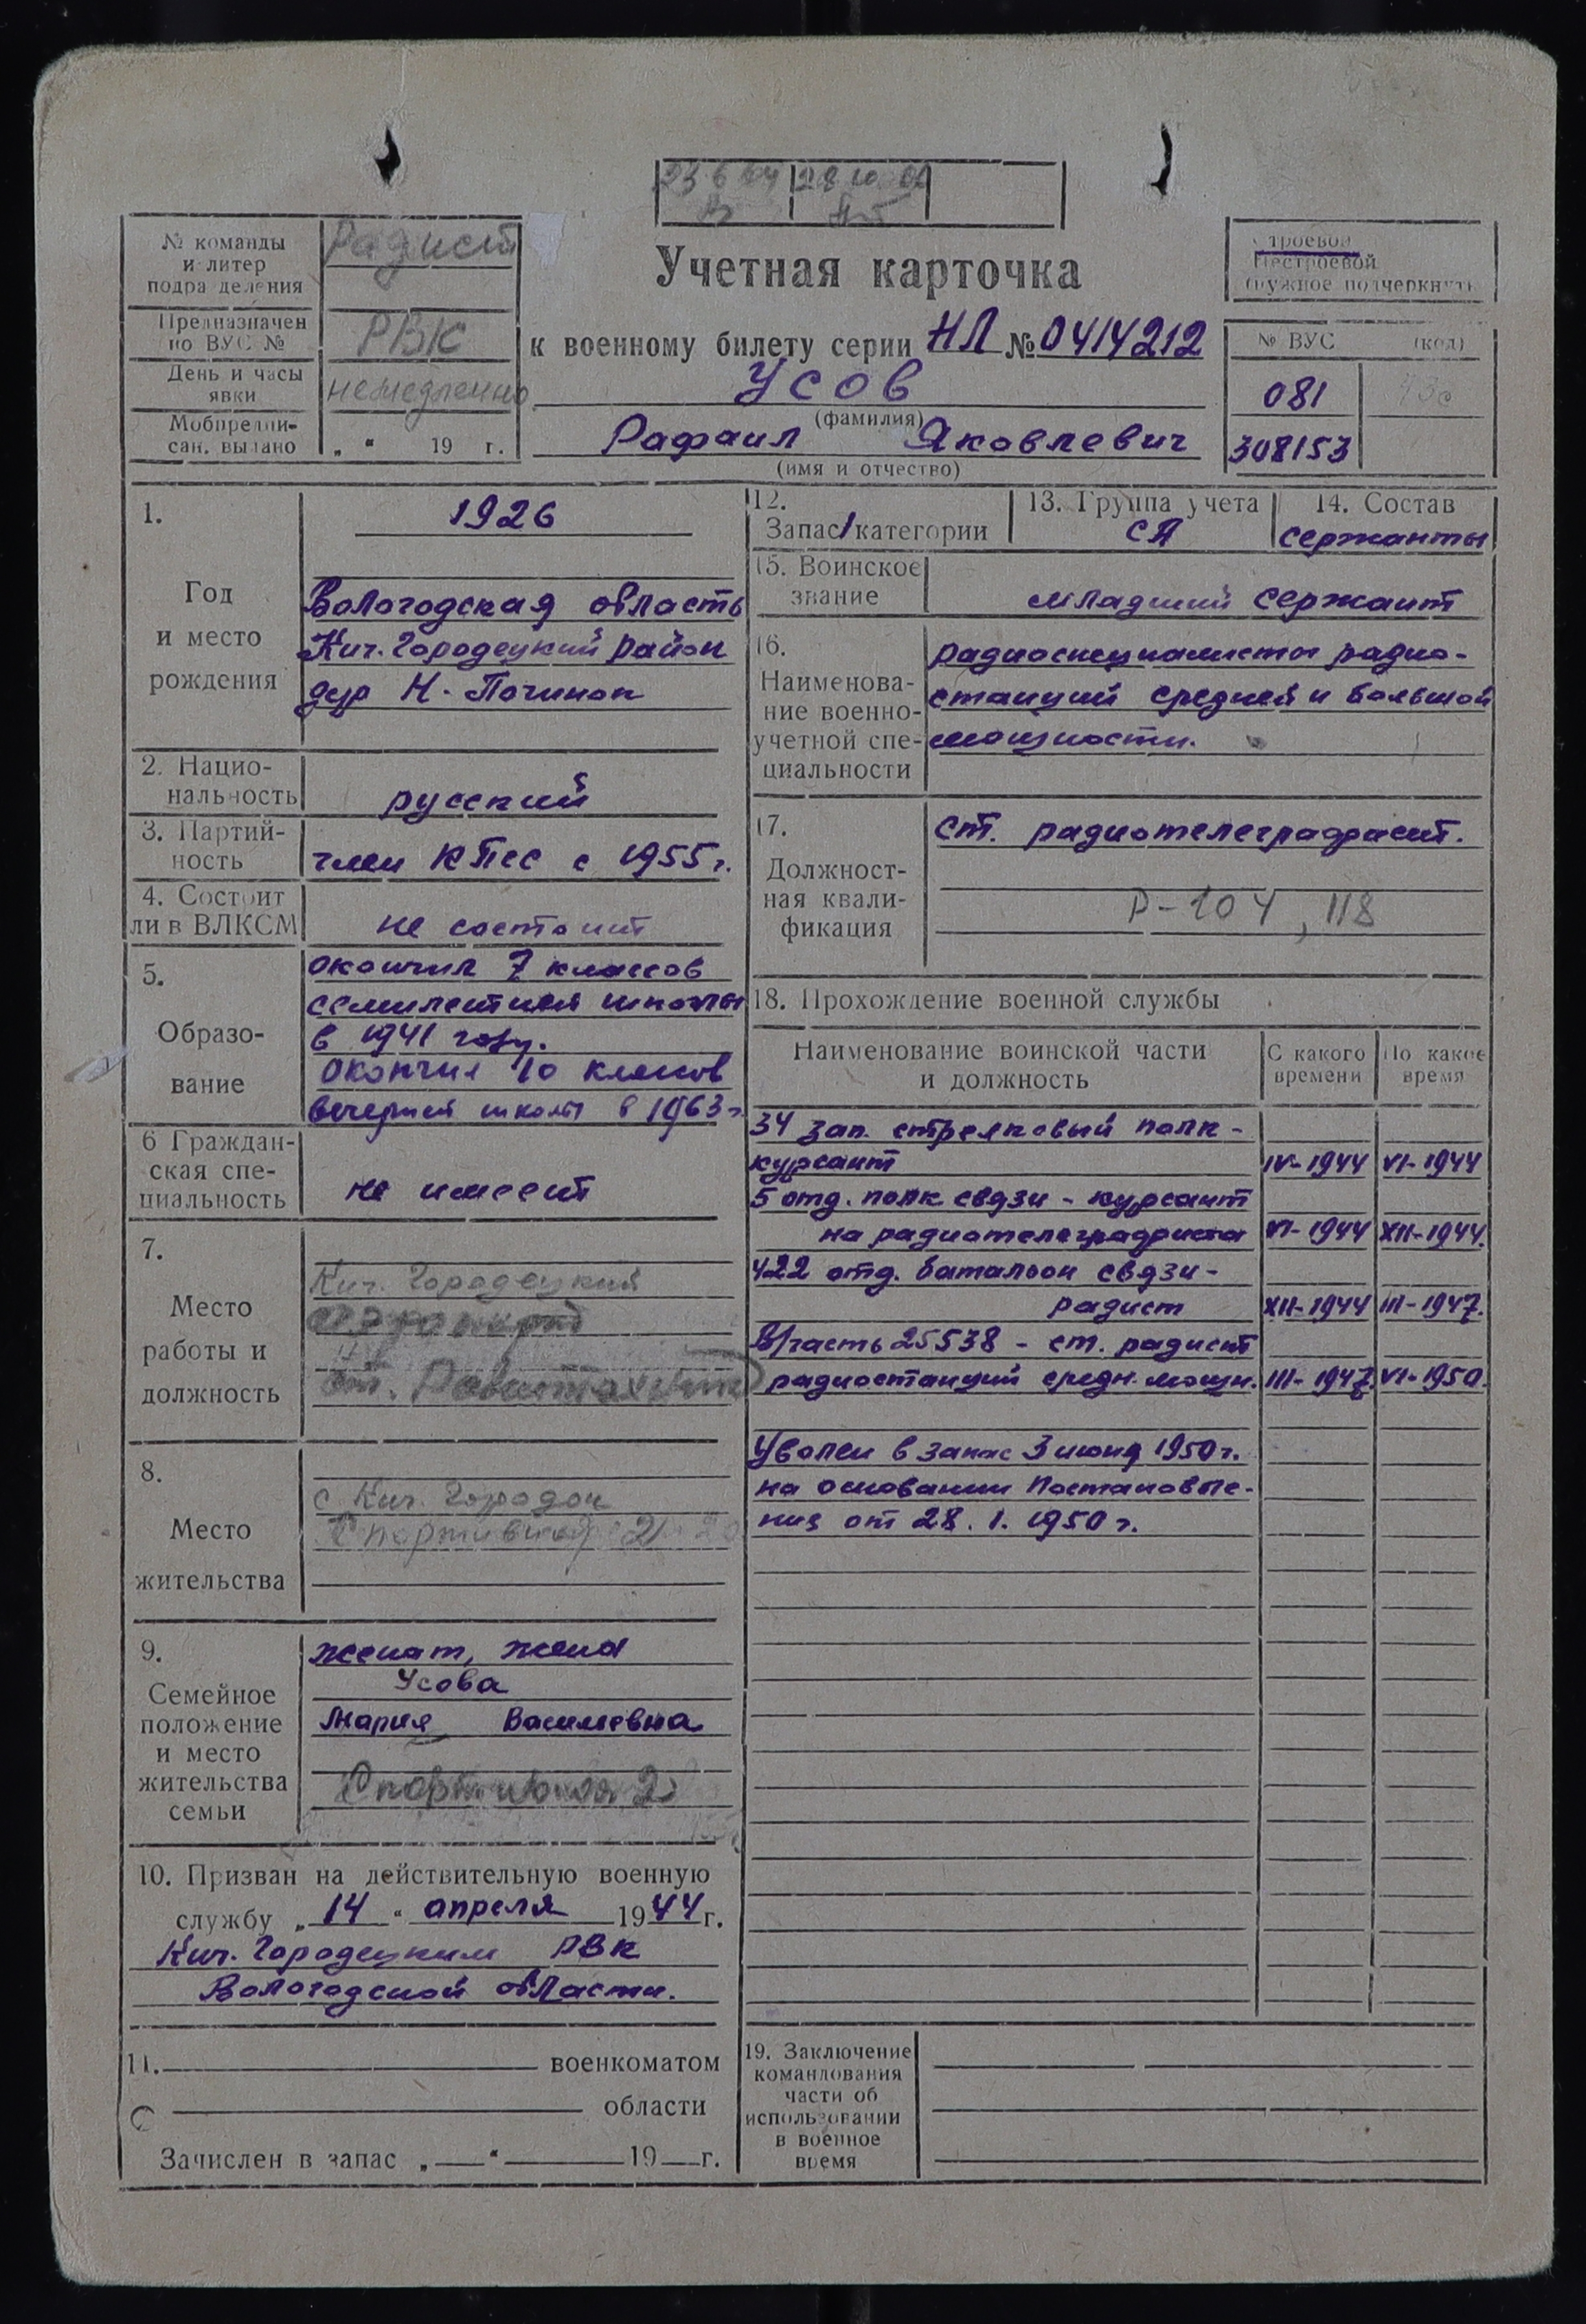 Учетная карточка
к военному билету серии НЛ № 0414212
Усов
(фамилия)
Рафаил Яковлевич
(имя и отчество)
№ команды и литер подразделения
Радист
Предназначен по ВУС №
РВК
День и часы явки
немедленно
Мобпредписан. выдано
„ “ 19 г.
Строевой
Нестроевой
(нужное подчеркнуть
№ ВУС (код)
081
308153
1.
Год
и место
рождения
1926
Вологодская область
Кич. Городецкий район
дер Н. Починок
2. Нацио-
нальность
русский
3. Партий-
ность
член КПСС с 1955 г.
4. Состоит
ли в ВЛКСМ
не состоит
5.
Образо-
вание
окончил 7 классов
семилетней школы
в 1941 году.
Окончил 10 классов
вечерней школы в 1963 г.
6 Граждан-
ская спе-
циальность
не имеет
7.
Место
работы и
должность
Кич. Городецкий
8.
Место
жительства
с Кич. Городок
Спортивная 2
9.
Семейное
положение
и место
жительства
семьи
женат, жена
Усова
Мария Васильевна
Спортивная 2
10. Призван на действительную военную
службу „ 14 “ апреля 1944 г.
Кич. Городецким РВК
Вологодской области.
11. военкоматом
области
Зачислен в запас „ “ 19 г.
12.
Запас 1 категории
13. Группа учета
СА
14. Состав
сержанты
15. Воинское
звание
младший сержант
16.
Наименова-
ние военно-
учетной спе-
циальности
радиоспециалисты радио-
станций средней и большой
мощности.
17.
Должност-
ная квали-
фикация
ст. радиотелеграфист.
Р-104, 118
18. Прохождение военной службы
Наименование воинской части
и должность
С какого
времени
По какое
время
34 зап. стрелковый полк -
курсант IV-1944 VI-1944
5 отд. полк связи - курсант
на радиотелеграфиста VI-1944 XII-1944.
422 отд. батальон связи -
радист XII-1944 III-1947.
В/часть 25538 - ст. радист
радиостанций средн. мощн. III-1947. VI-1950.
Уволен в запас 3 июня 1950 г.
на основании Постановле-
ния от 28. 1. 1950 г.
19. Заключение
командования
части об
использовании
в военное
время